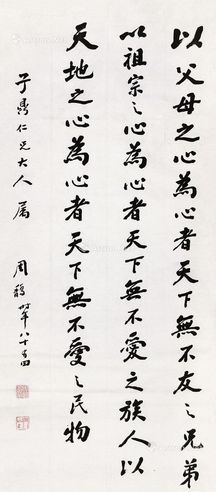 以父母之心為心者天下無不友之兄弟
以祖宗之心為心者天下無不愛之族人以
天地之心為心者天下無不愛之民物
仁兄大人屬
周 時年八十四